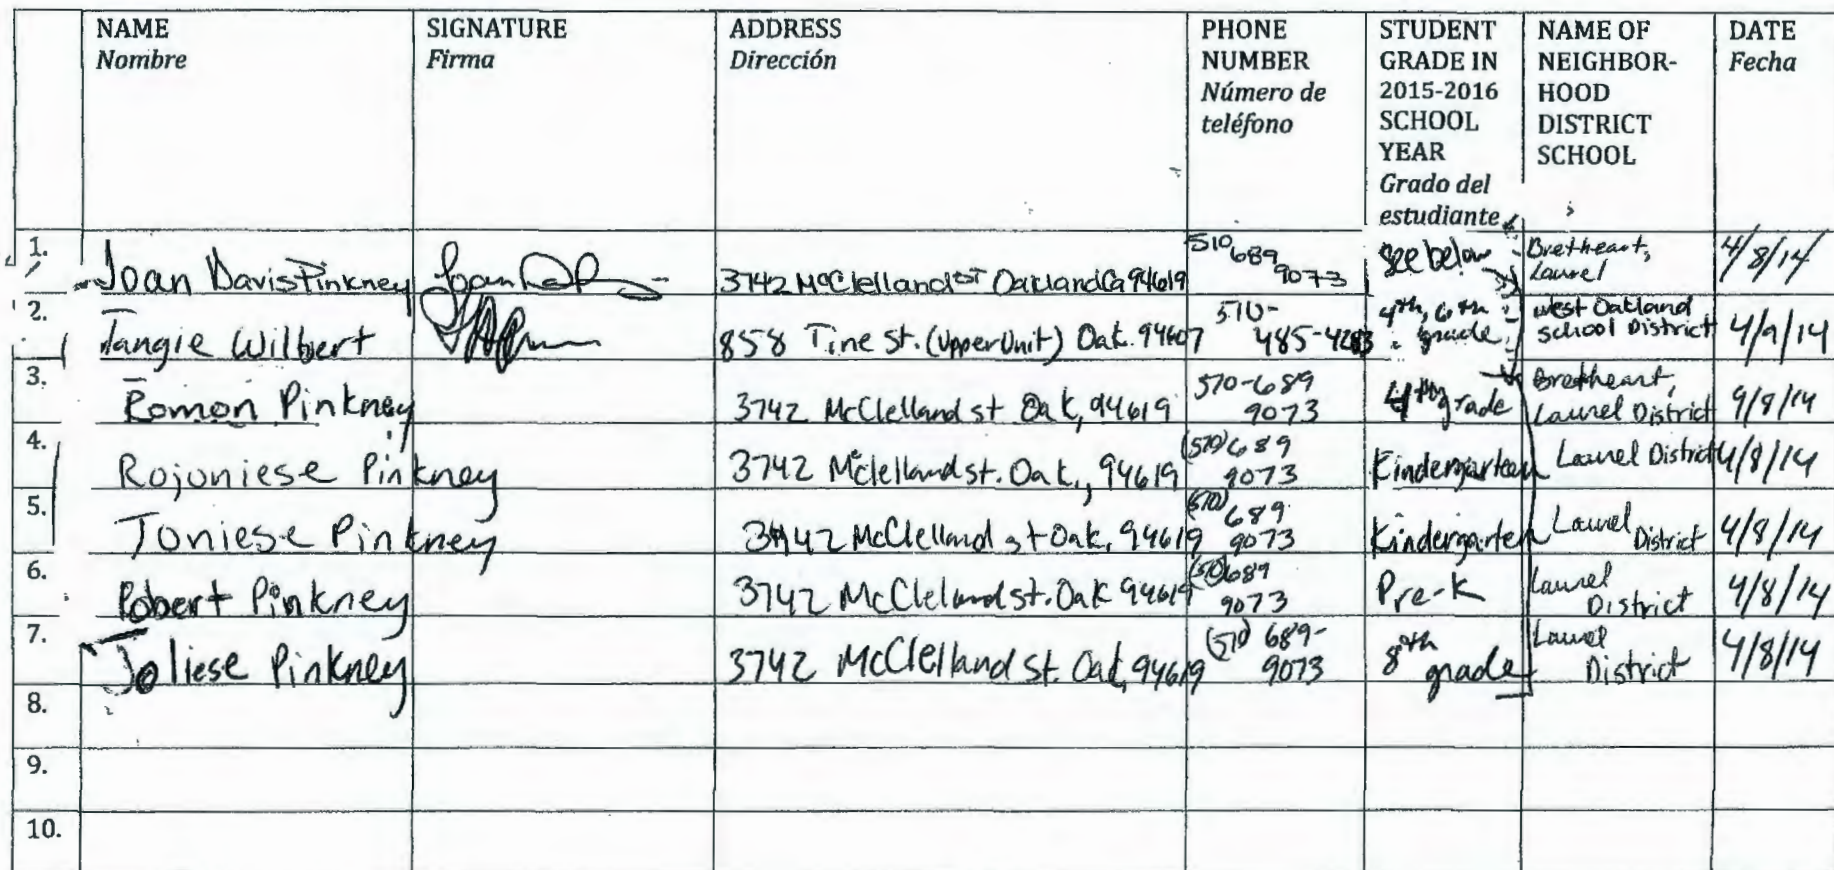 NAME SIGNATURE ADDRESS PHONE STUDENT NAME OF DATE
Nombre Firma Dirección NUMBER GRADE IN NEIGHBOR- Fecha
Número de 2015-2016 HOOD
teléfono SCHOOL DISTRICT
YEAR SCHOOL
Grado del
estudiante
1. Joan Davis Pinkney 3742 McClelland ST Oakland Ca 94619 510 689 9073 see below Bretheart, Laurel 4/8/14
2. Tangie Wilbert 858 Tine St. (Upper Unit) Oak. 94607 510- 485-4283 4th, 6th grade West Oakland School District 4/9/14
3. Romon Pinkney 3742 McClelland st Oak, 94619 510-689 9073 4th grade Bretheart, Laurel District 9/8/14
4. Rojoniese Pinkney 3742 McClelland st. Oak., 94619 (510) 689 9073 Kindergarteen Laurel District 4/8/14
5. Joniese Pinkney 3742 McClelland st Oak, 94619 (510) 689 9073 Kindergarten Laurel District 4/8/14
6. Robert Pinkney 3742 McClelland st. Oak 94619 (510) 689 9073 Pre-K Laurel District 4/8/14
7. Joliese Pinkney 3742 McClelland st. Oak, 94619 (510) 689- 9073 8th grade Laurel District 4/8/14
8.
9.
10.